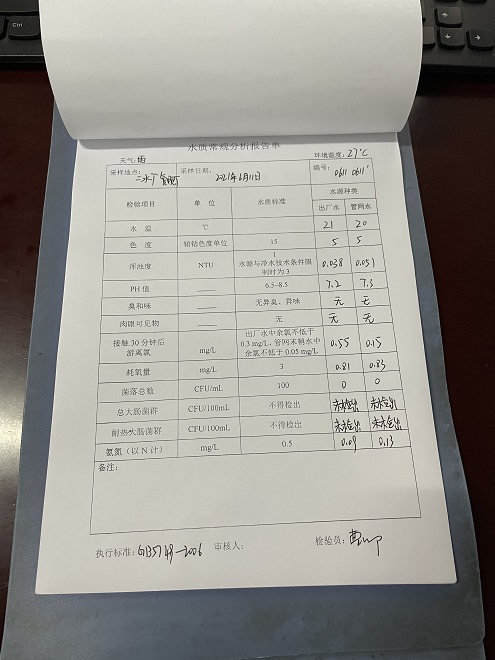 Ctrl
水质常规分析报告单
天气: 晴 环境温度: 27℃
采样地点: 二水厂 采样日期: 2021年6月11日 编号: 0611 0611'
检验项目 单 位 水质标准 水源种类
出厂水 管网水
水 温 ℃ 21 20
色 度 铂钴色度单位 15 5 5
浑浊度 NTU 1 水源与净水技术条件限制时为3 0.038 0.051
PH 值 —— 6.5~8.5 7.2 7.3
臭和味 —— 无异臭、异味 无 无
肉眼可见物 —— 无 无 无
接触30分钟后游离氯 mg/L 出厂水中余氯不低于0.3 mg/L,管网末梢水中余氯不低于0.05 mg/L 0.55 0.15
耗氧量 mg/L 3 0.81 0.83
菌落总数 CFU/mL 100 0 0
总大肠菌群 CFU/100mL 不得检出 未检出 未检出
耐热大肠菌群 CFU/100mL 不得检出 未检出 未检出
氨氮(以N计) mg/L 0.5 0.09 0.13
备注:
执行标准: GB5749-2006 审核人: 检验员: